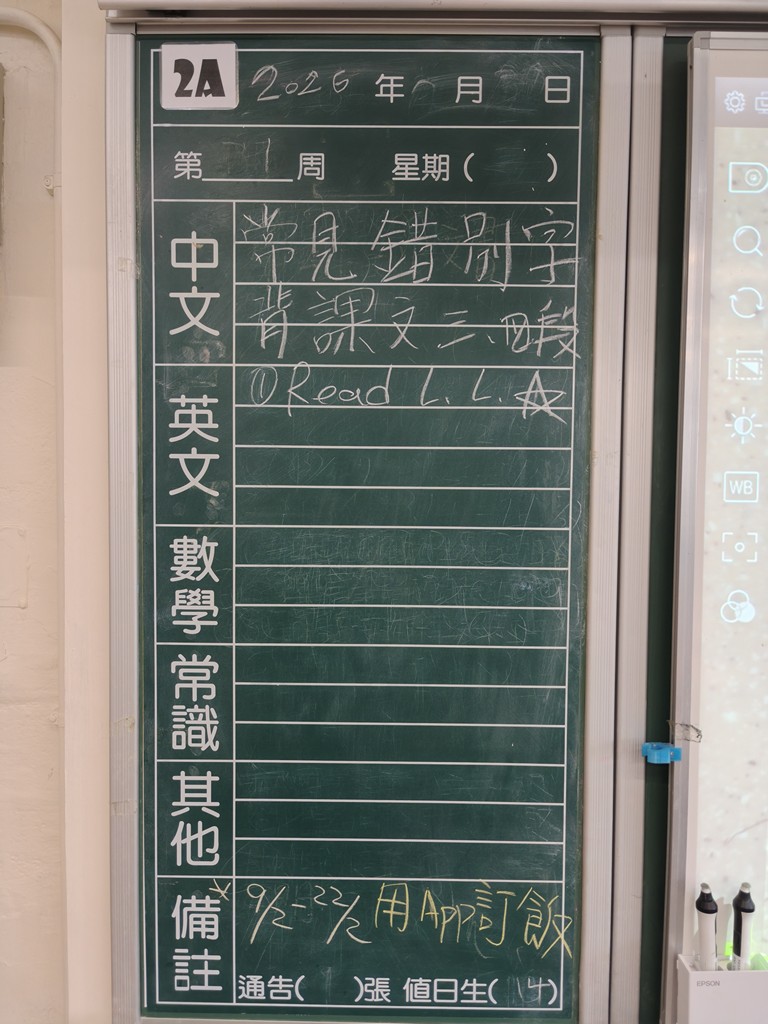 2A 2026 年 月 日
第 周 星期( )
中文
常見錯別字
背課文三、四段
英文
① Read L. L. ☆
數學
常識
其他
備註
* 9/2-22/2 用App訂飯
通告( )張 值日生( 14 )
WB
EPSON